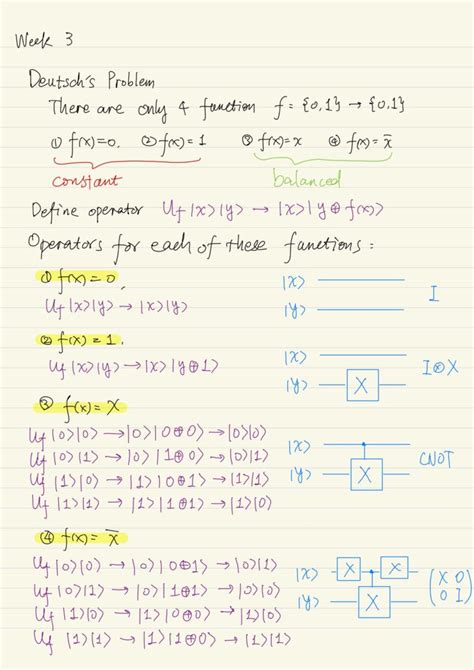 Week 3
Deutsch's Problem
There are only 4 function f = {0,1} → {0,1}
① f(x)=0. ② f(x)=1 ③ f(x)=x ④ f(x)=x̄
constant balanced
Define operator Uf|x⟩|y⟩ → |x⟩|y⊕f(x)⟩
Operators for each of these functions:
① f(x)=0.
Uf|x⟩|y⟩ → |x⟩|y⟩
|x⟩
|y⟩
I
② f(x)=1.
Uf|x⟩|y⟩ → |x⟩|y⊕1⟩
|x⟩
|y⟩ X
I⊗X
③ f(x)=x
Uf|0⟩|0⟩ → |0⟩|0⊕0⟩ → |0⟩|0⟩
Uf|0⟩|1⟩ → |0⟩|1⊕0⟩ → |0⟩|1⟩
Uf|1⟩|0⟩ → |1⟩|0⊕1⟩ → |1⟩|1⟩
Uf|1⟩|1⟩ → |1⟩|1⊕1⟩ → |1⟩|0⟩
|x⟩
|y⟩ X
CNOT
④ f(x)=x̄
Uf|0⟩|0⟩ → |0⟩|0⊕1⟩ → |0⟩|1⟩
Uf|0⟩|1⟩ → |0⟩|1⊕1⟩ → |0⟩|0⟩
Uf|1⟩|0⟩ → |1⟩|0⊕0⟩ → |1⟩|0⟩
Uf|1⟩|1⟩ → |1⟩|1⊕0⟩ → |1⟩|1⟩
|x⟩ X X
|y⟩ X
(X 0
0 I)